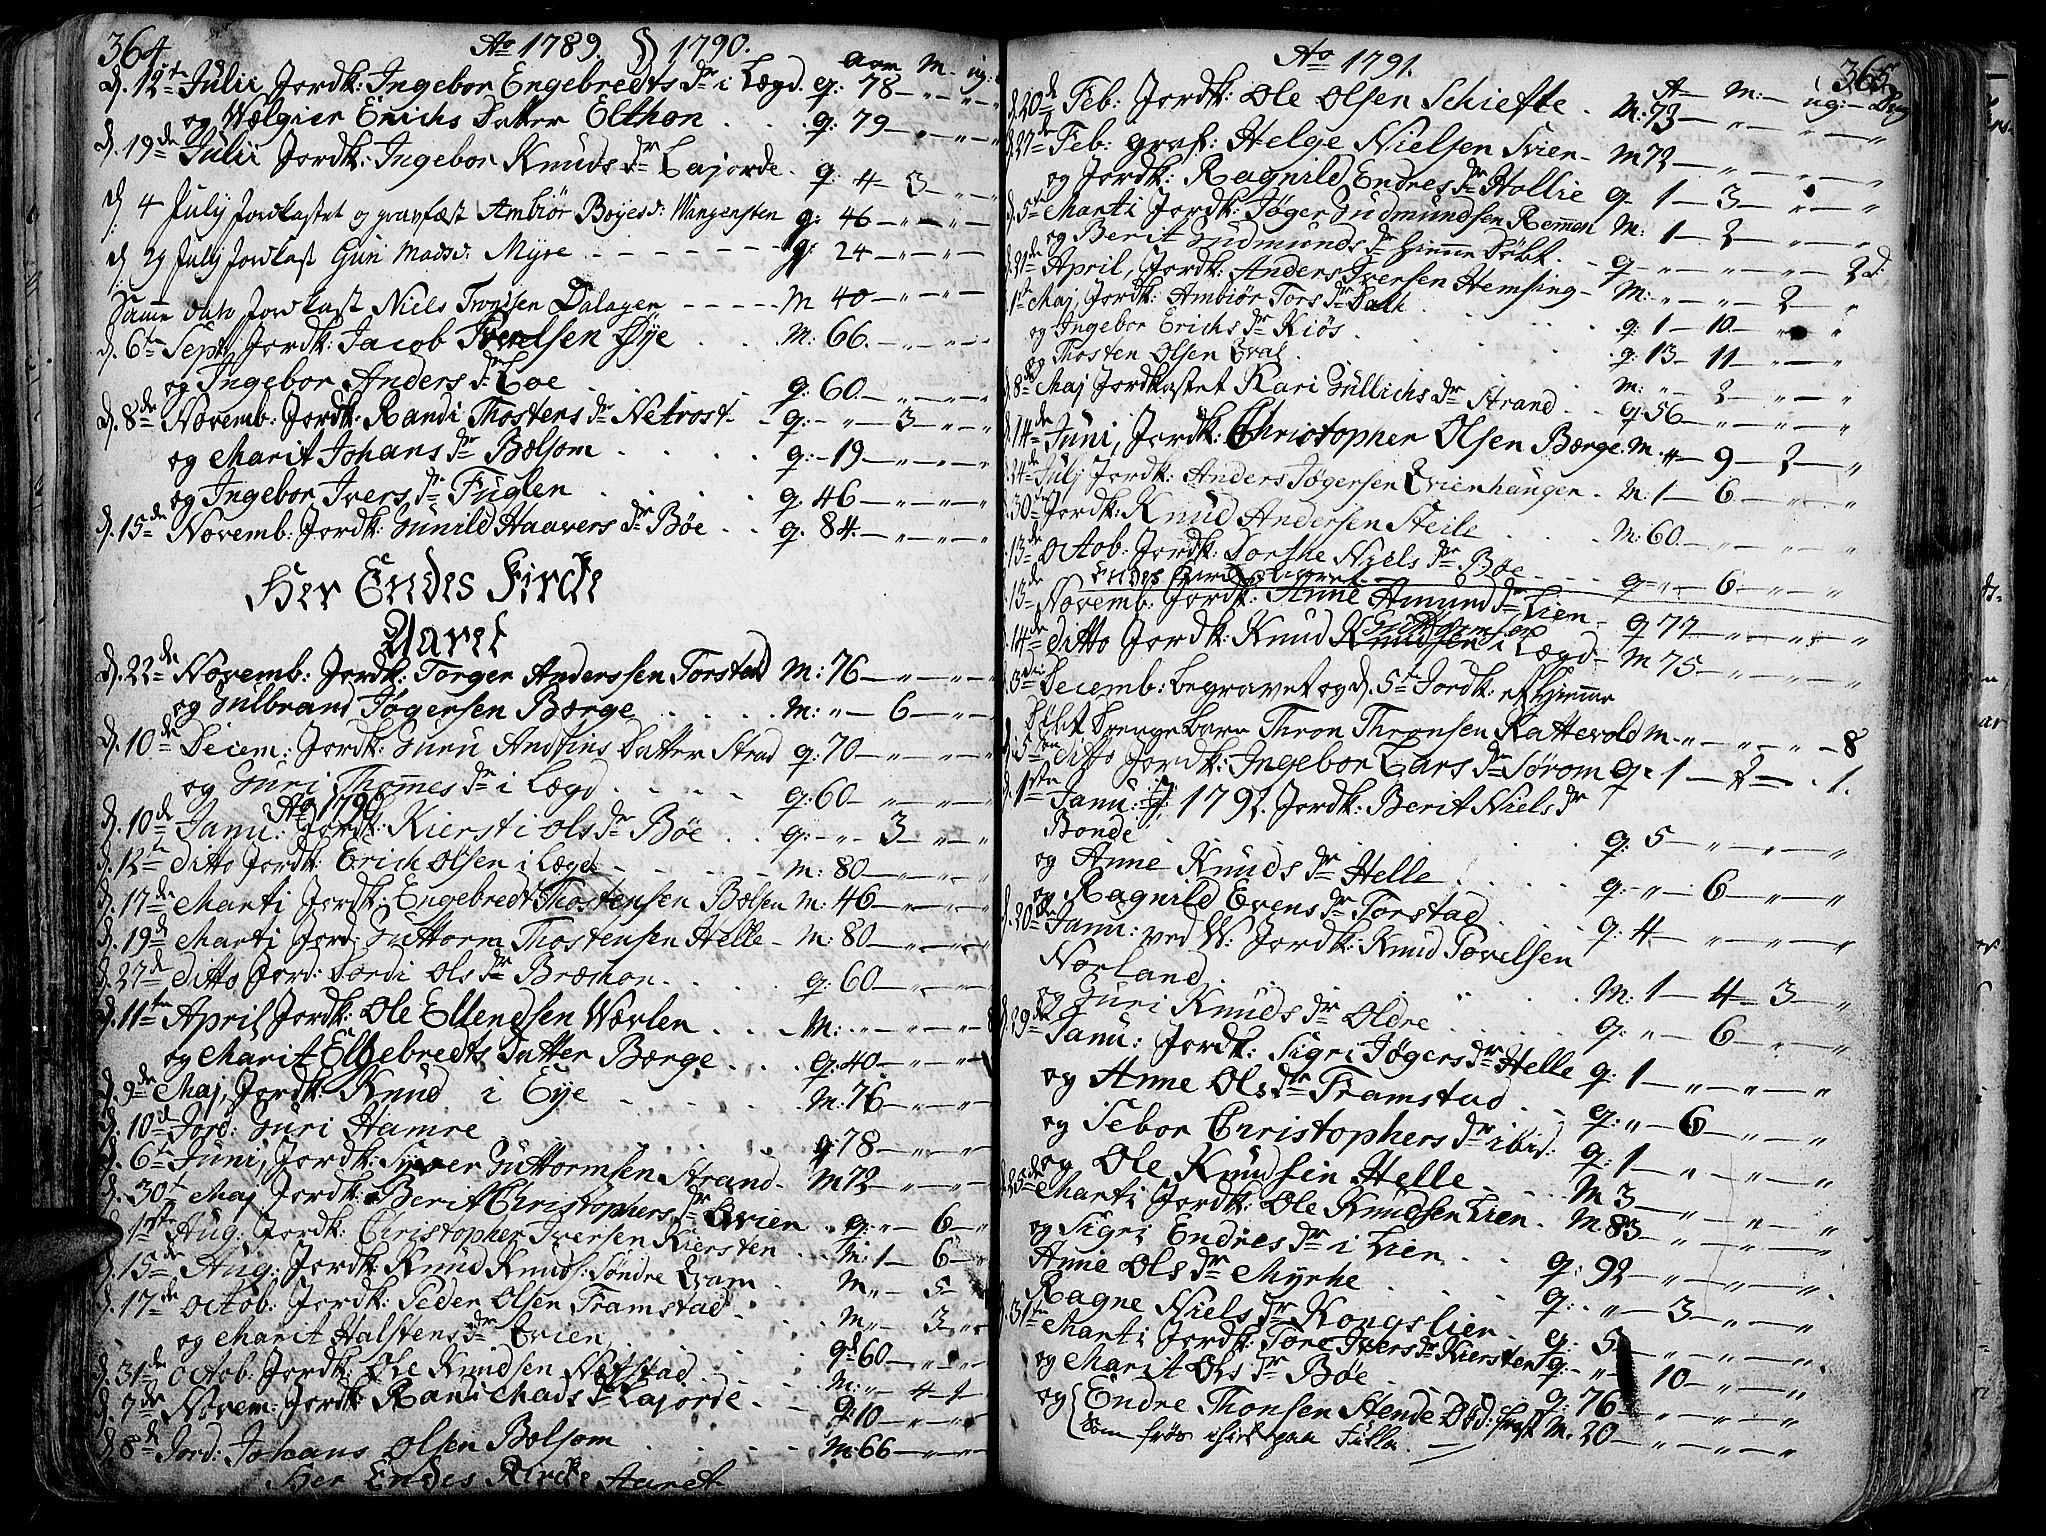 364
Ao 1789. & 1790.
aar M. ug:
d. 12te Julii Jordk: Ingebor Engebredts dr i Lægd. q: 78 — „ — „ — „
og Wælgier Erichs Datter Elthon . . . q: 79 — „ — „ — „
d. 19de Julii Jordk: Ingebor Knuds dr Lajorde. q: 4 — 3 — „ — „
d 4 July Jordkastet og gravfæst Ambiør Boyesd: Wangensten q: 46 — „ — „ — „
d 29 July Jordkast Guri Madsd: Myre - - - - - - q: 24 — „ — „ — „
Samme dato Jordkast Niels Trondsen Dalagen - - - - - M 40 — „ — „ — „
d. 6te Sept, Jordk: Jacob Povelsen Øye . . . M: 66. — „ — „ — „
og Ingebor Anders dr Loe . . . q: 60. — „ — „ — „
d. 8de Novemb: Jordk: Randi Thostens dr Netrost - - q: - „ — 3 — „ — „
og Marit Johans dr Bolsom . . . . q: - 19 — „ — „ — „
og Ingebor Ivers dr Fuglen . . . . q: 46 — „ — „ — „
d. 15de Novemb: Jordk: Gunild Haavers dr Bøe . . q. 84. — „ — „ — „
Her Endes Kircke
Aaret
d. 22de Novemb: Jordk: Torger Anderssen Torstad M: 76 — „ — „ — „
og Gulbrand Jøgersen Børge . . . . M: „ — 6 — „ — „
d. 10de Decem: Jordk: Guru Andfins Datter Strad q: 70 — „ — „ — „
og Guri Thommes dr i Lægd . . . . q: 60 — „ — „ — „
Ao 1790
d. 10de Janu: Jordk: Kiersti Ols dr Bøe . . q: - „ - 3 — „ — „
d. 12te ditto Jordk: Erich Olsen i Lægd - - - - - M: 80 — „ — „ — „
d. 17de Marti Jordk: Engebredt Thostensen Bolsen M: 46 — „ — „ — „
d. 19de Marti Jord: Guttorm Thostensen Helle - M: 80 — „ — „ — „
d. 27de ditto Jord: Dordi Ols dr Bræmon . . . . q: 60 — „ — „ — „
d. 11te April Jordk: Ole Ellendsen Wævlen . . . M: „ — „ — „ — 8
og Marit Elgebredts Datter Børge . . . q: 40 — „ — „ — „
d. 9de Maj, Jordk: Knud i Eye - - - - - M: 76 — „ — „ — „
d. 10de Jord: Guri Hamre . . . . q: 78 — „ — „ — „
d. 6te Juni, Jordk: Syver Guttormsen Strand - M 72 — „ — „ — „
d. 30te Maj Jordk: Berit Christophers dr Qvien . q: „ — 6 — „
d. 1ste Aug: Jordk: Christopher Iversen Kiersten . M: 1 — 6 — „
d. 15de Aug: Jordk: Knud Knuds: Søndre Qvam . . M „ — 5 — „
d. 17de Octob: Jordk: Peder Olsen Framstad . . . M „ — 3 — „
og Marit Halstens dr Qvien . . . . qd 60 — „ — „ — „
d. 31de Octob: Jordk: Ole Knudsen Nefstad . . . M: „ — 4 1
d. 7de Novem: Jordk: Rani Mads dr Lajorde . . q: 10 — „ — „ — „
d. 8de Jord: Johans Olsen Bolsom . . . . M: 66 — „ — „ — „
Her Endes Kircke Aaret
365
Ao 1791.
A — M: — ug: — dag
d. 20de Feb: Jordk: Ole Olsen Schiefte . M: 73 — „ — „ — „
d. 27de Feb: graf: Helge Nielsen Svien - M 72 — „ — „ — „
og Jordk: Ragnild Endres dr Hollie q. 1 — 3 — „ — „
d. 5te Marti Jordk: Jøger Gudmundsen Remmen M: 1 — 2 — „ — „
og Berit Gudmunds dr Hiemme Døbt. - q - „ — „ — „ — 2 d:
d. 21de April, Jordk: Anders Iversen Hemsing - M: „ — „ — 2 „
d. 1te Maj, Jordk: Ambiør Tors dr Dahl . . . q: 1 — 10 — „ — „
og Ingebor Erichs dr Kiøs . . . . q: 13 — 11 — „ — „
og Thosten Olsen Qvale . . . . M: „ — 2 — „ — „
d. 8de Maj Jordkastet Kari Gullichs dr Strand . . q. 56 — „ — „ — „
d. 14de Juni, Jordk: Christopher Olsen Børge. M. „ — 9 — 2 — „
d. 24de Julj Jordk: Anders Jøgersen Qvienhaugen - M: 1 — 6 — „ — „
d. 30te Jordk: Knud Andersen Steile . . . . M: 60. — „ — „ — „
d. 13de Octob: Jordk: Dorthe Niels dr Bøe - - - - q - „ - 6 — „ — „
Endes Kircke Aaret
d. 13de Novemb: Jordk: Anne Amund dr Lien - q 77 — „ — „ — „
d. 14de ditto Jordk: Knud Guttormsen i Lægd - M 75 — „ — „ — „
d. 3die Decemb: begravet og d. 5te Jordk: et hiemme
døbt Drenge Barn Thron Thronsen Kattevold M - „ — „ — „ — 8
d. 5te ditto Jordk: Ingebor Lars dr Sørom q: 1 — 2 — . 1.
d. 1ste Janu: 1792. Jordk: Berit Niels dr
Bonde . . . . q: 5 — „ — „ — „
og Anne Knuds dr Helle . . . . q: - „ — 6 — „ — „
og Ragnild Evens dr Torstad . . . q: 4 — „ — „ — „
d. 20de Janu: ved W: Jordk: Knud Povelsen
Norland . . . . M: 1 — 4 — 3 — „
og Guri Knuds dr Oldre . . . . q: „ — 6 — „ — „
d. 29de Janu: Jordk: Sigri Jøgers dr Helle q: 1 — „ — „ — „
og Anne Ols dr Framstad . . q: „ — 6 — „ — „
og Sebor Christophers dr ibid: q: 1 — „ — „ — „
og Ole Knudsen Helle . . . M 3 — „ — „ — „
d. 25de Marti Jordk: Ole Knudsen Lien . M. 83 — „ — „ — „
og Sigri Endres dr i Lien . . . q: 92 — „ — „ — „
Anne Ols dr Myrhe . . . . q: „ — 3 — „ — „
Ragne Niels dr Kongslien . . q: 5 — „ — „ — „
d. 31te Marti Jordk: Tore Ivers dr Kiersten q: - „ — 10 — „ — „
og Marit Ols dr Bøe . . . . q: 76 — „ — „ — „
og Endre Thonsen Stende Død: frøst M: 20 — „ — „ — „
som frøs ihiel paa Filla . —